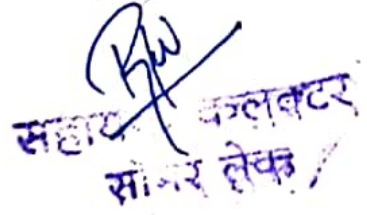 सहायक कलक्टर
सांभर लेक